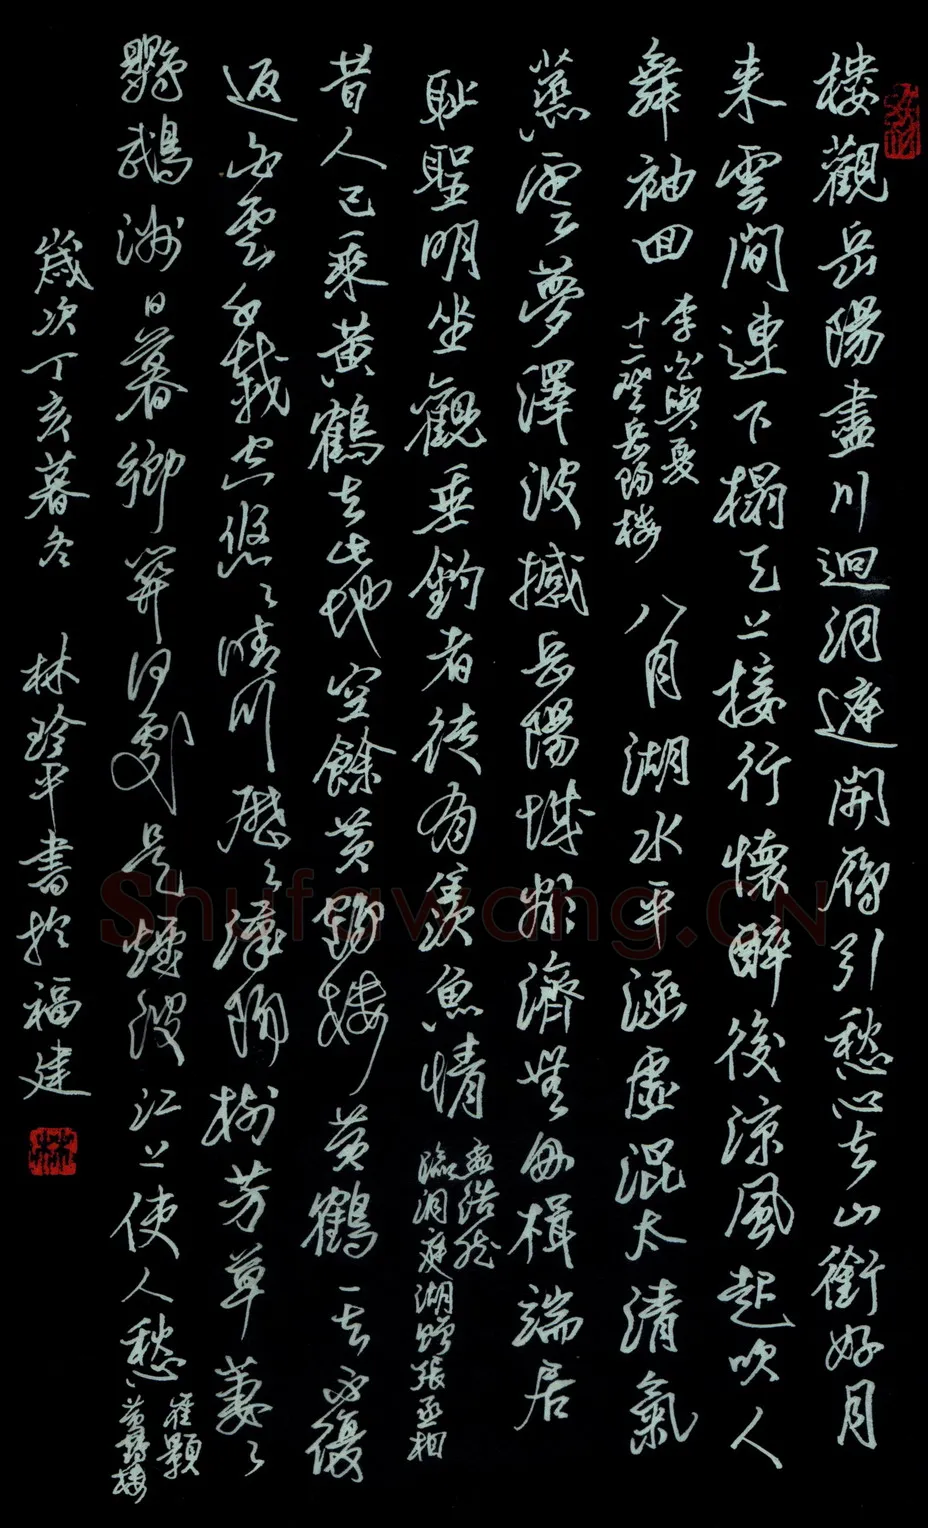 樓觀岳陽盡川迴洞庭開雁引愁心去山銜好月
来雲間連下榻天上接行懷醉後涼風起吹人
舞袖回
李白與夏
十二登岳陽樓
八月湖水平涵虛混太清氣
蒸雲夢澤波撼岳陽城欲濟無舟楫端居
恥聖明坐觀垂釣者徒有羨魚情
孟浩然
臨洞庭湖贈張丞相
昔人已乘黃鶴去此地空餘黃鶴樓黃鶴一去不復
返白雲千載空悠々晴川歷々漢陽樹芳草萋々
鸚鵡洲日暮鄉關何處是煙波江上使人愁
崔顥
黃鶴樓
歲次丁亥暮冬 林玲平書於福建
林
Shufawang.CN